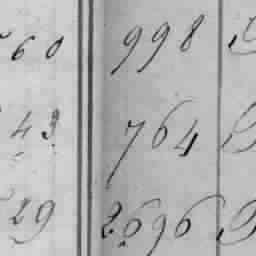 60 998
43 764
29 2696